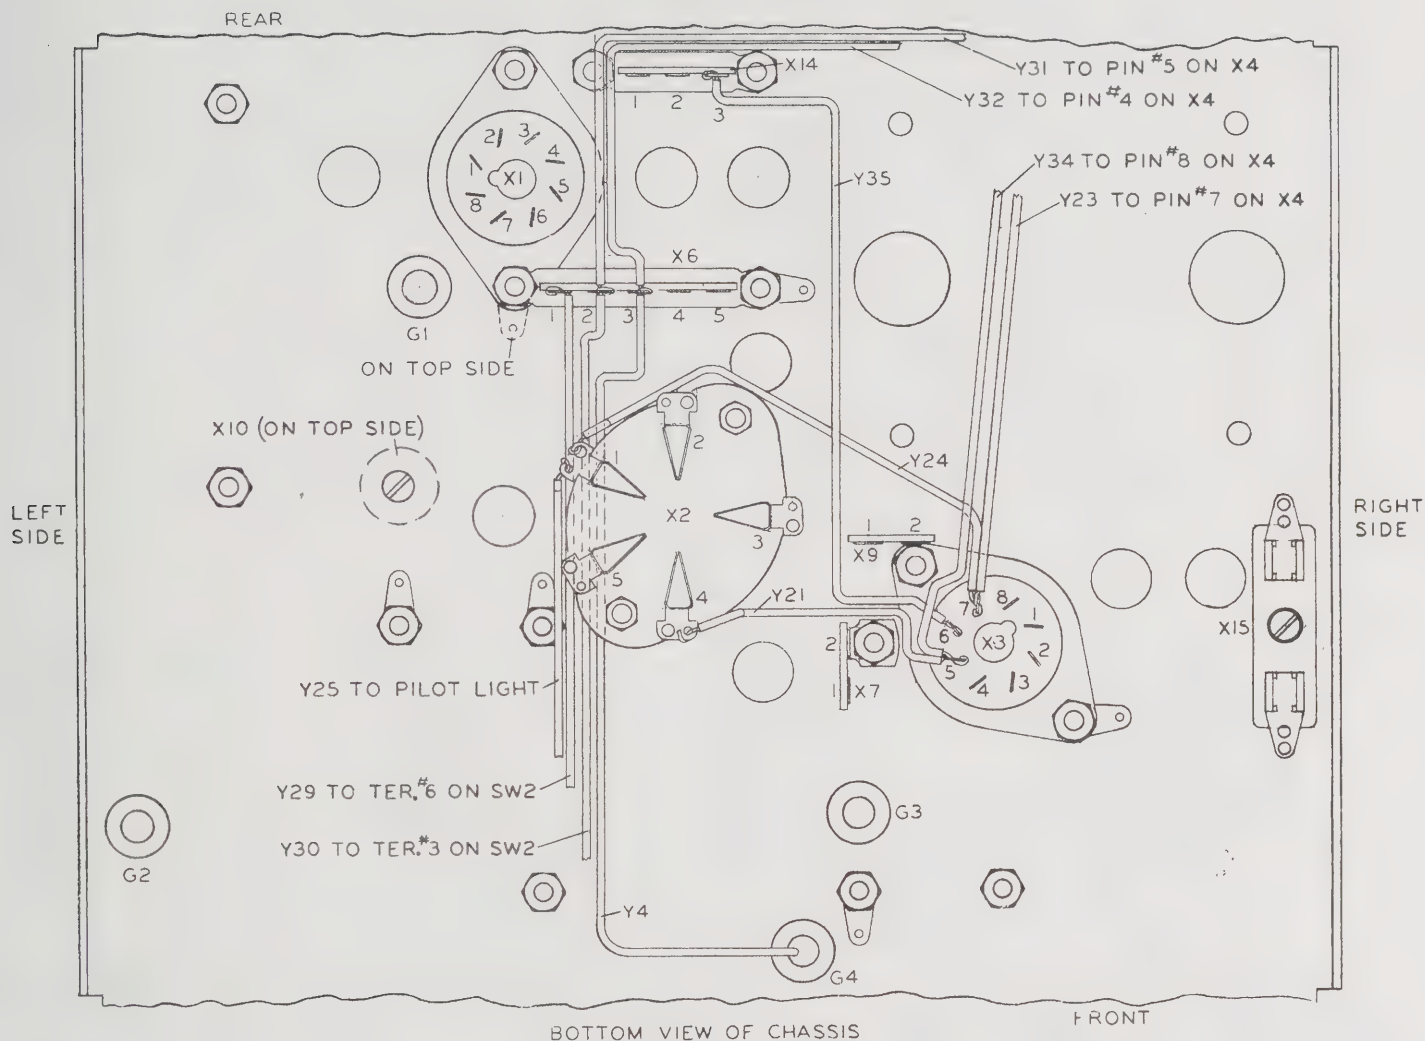 REAR
X14
1 2 3
Y31 TO PIN #5 ON X4
Y32 TO PIN #4 ON X4
Y34 TO PIN #8 ON X4
Y23 TO PIN #7 ON X4
Y35
1 2 3 4 5 6 7 8
X1
X6
1 2 3 4 5
G1
ON TOP SIDE
X10 (ON TOP SIDE)
LEFT
SIDE
RIGHT
SIDE
Y24
1 2 3 4 5
X2
1 2
X9
Y21
1 2 3 4 5 6 7 8
X3
2
1 X7
X15
Y25 TO PILOT LIGHT
Y29 TO TER. #6 ON SW2
Y30 TO TER. #3 ON SW2
G2
G3
Y4
G4
FRONT
BOTTOM VIEW OF CHASSIS